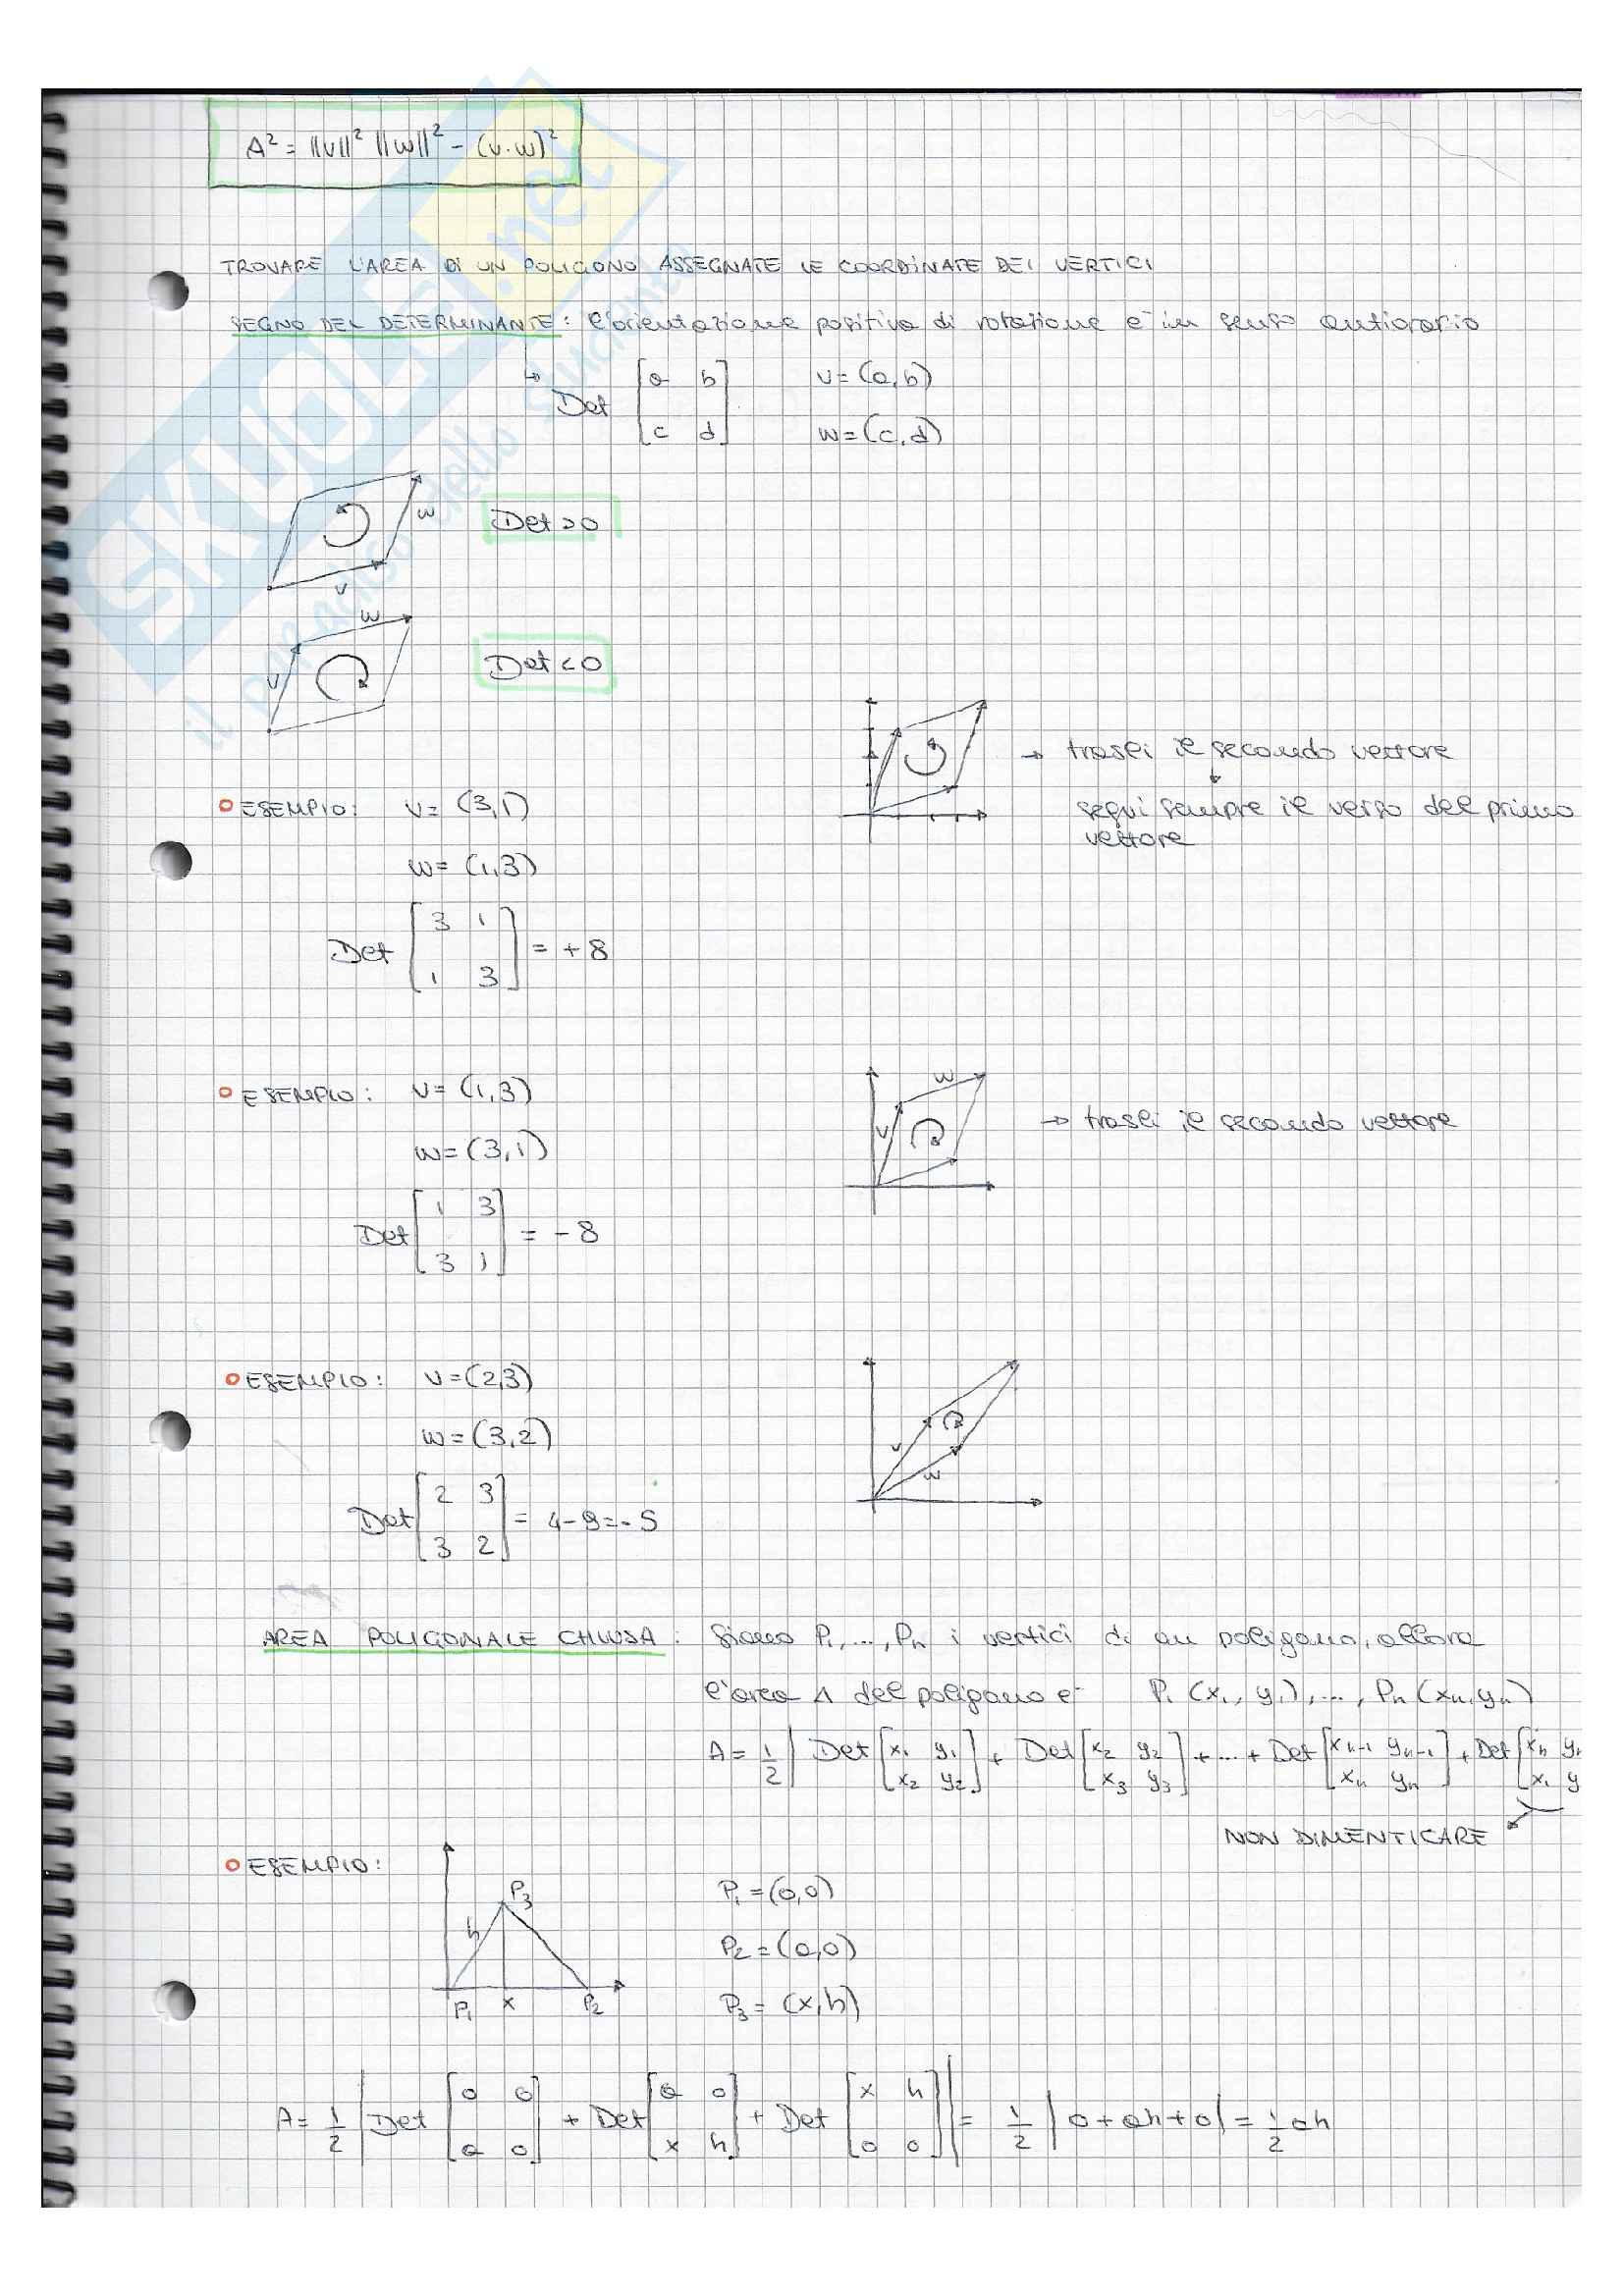 A² = ||v||² ||w||² - (v·w)²
TROVARE L'AREA DI UN POLIGONO ASSEGNATE LE COORDINATE DEI VERTICI
SEGNO DEL DETERMINANTE: l'orientazione positiva di rotazione è in senso antiorario
↳ Det [a b] v=(a,b)
[c d] w=(c,d)
w
Det>0
v
w
Det<0
v
→ trasli il secondo vettore
↓
segui sempre il verso del primo
vettore
ESEMPIO: v= (3,1)
w= (1,3)
Det [3 1] = +8
[1 3]
ESEMPIO: v= (1,3)
w=(3,1)
Det [1 3] = -8
[3 1]
w
v
→ trasli il secondo vettore
ESEMPIO: v=(2,3)
w=(3,2)
Det [2 3] = 4-9=-5
[3 2]
v
w
AREA POLIGONALE CHIUSA: Siano P₁,...,Pₙ i vertici di un poligono, allora
l'area A del poligono è P₁(x₁,y₁),...,Pₙ(xₙ,yₙ)
A= 1/2 | Det [x₁ y₁] + Det [x₂ y₂] +...+ Det [xₙ₋₁ yₙ₋₁] + Det [xₙ yₙ
[x₂ y₂] [x₃ y₃] [xₙ yₙ] [x₁ y
NON DIMENTICARE
ESEMPIO:
P₃
h
P₁ x P₂
P₁=(0,0)
P₂=(a,0)
P₃=(x,h)
A= 1/2 | Det [0 0] + Det [a 0] + Det [x h] | = 1/2 | 0+ah+0| = 1/2 ah
[a 0] [x h] [0 0]
SKUOLA.net
il paradiso dello studente